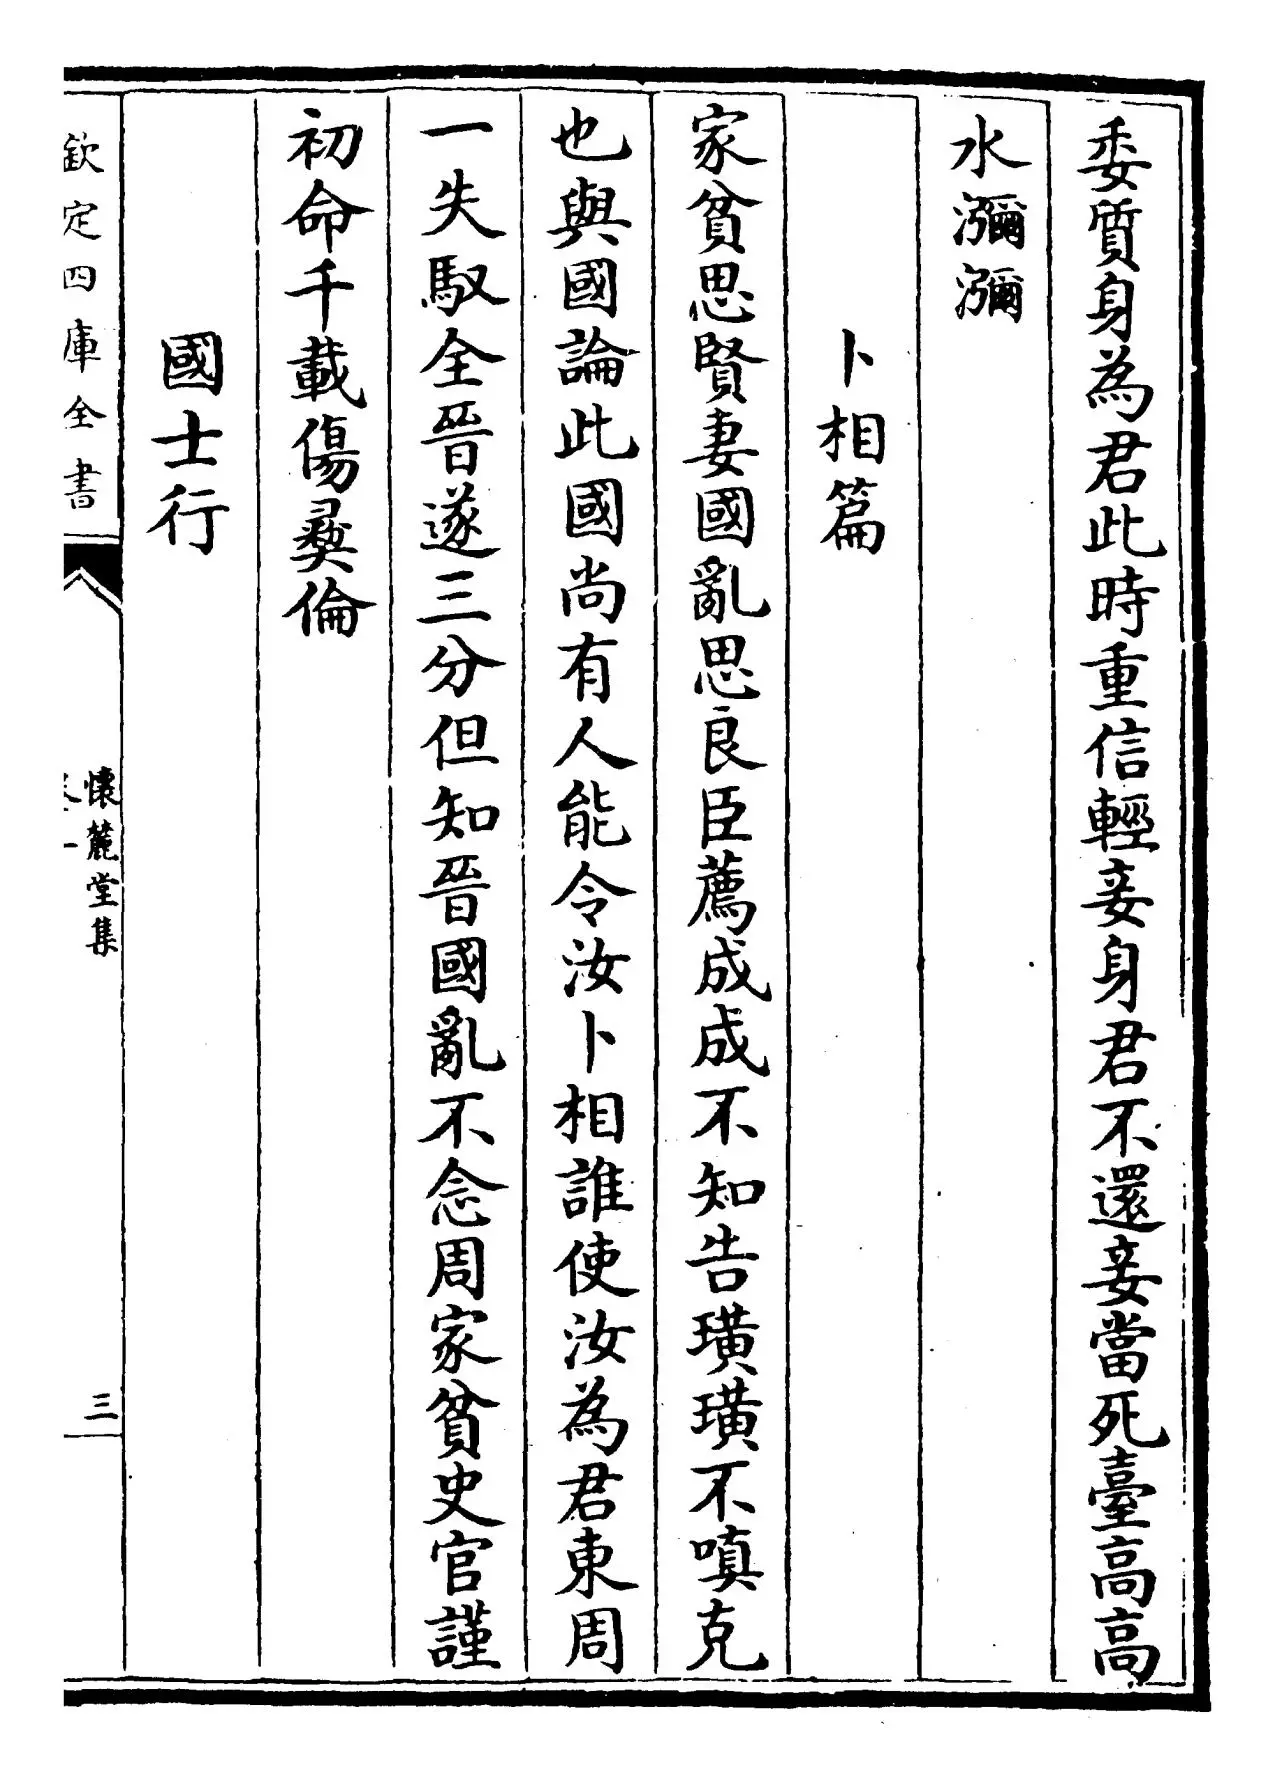 委質身為君此時重信輕妾身君不還妾當死臺高高
水瀰瀰
卜相篇
家貧思賢妻國亂思良臣薦成成不知告璜璜不嗔克
也與國論此國尚有人能令汝卜相誰使汝為君東周
一失馭全晉遂三分但知晉國亂不念周家貧史官謹
初命千載傷彝倫
國士行
欽定四庫全書
懷麓堂集
三